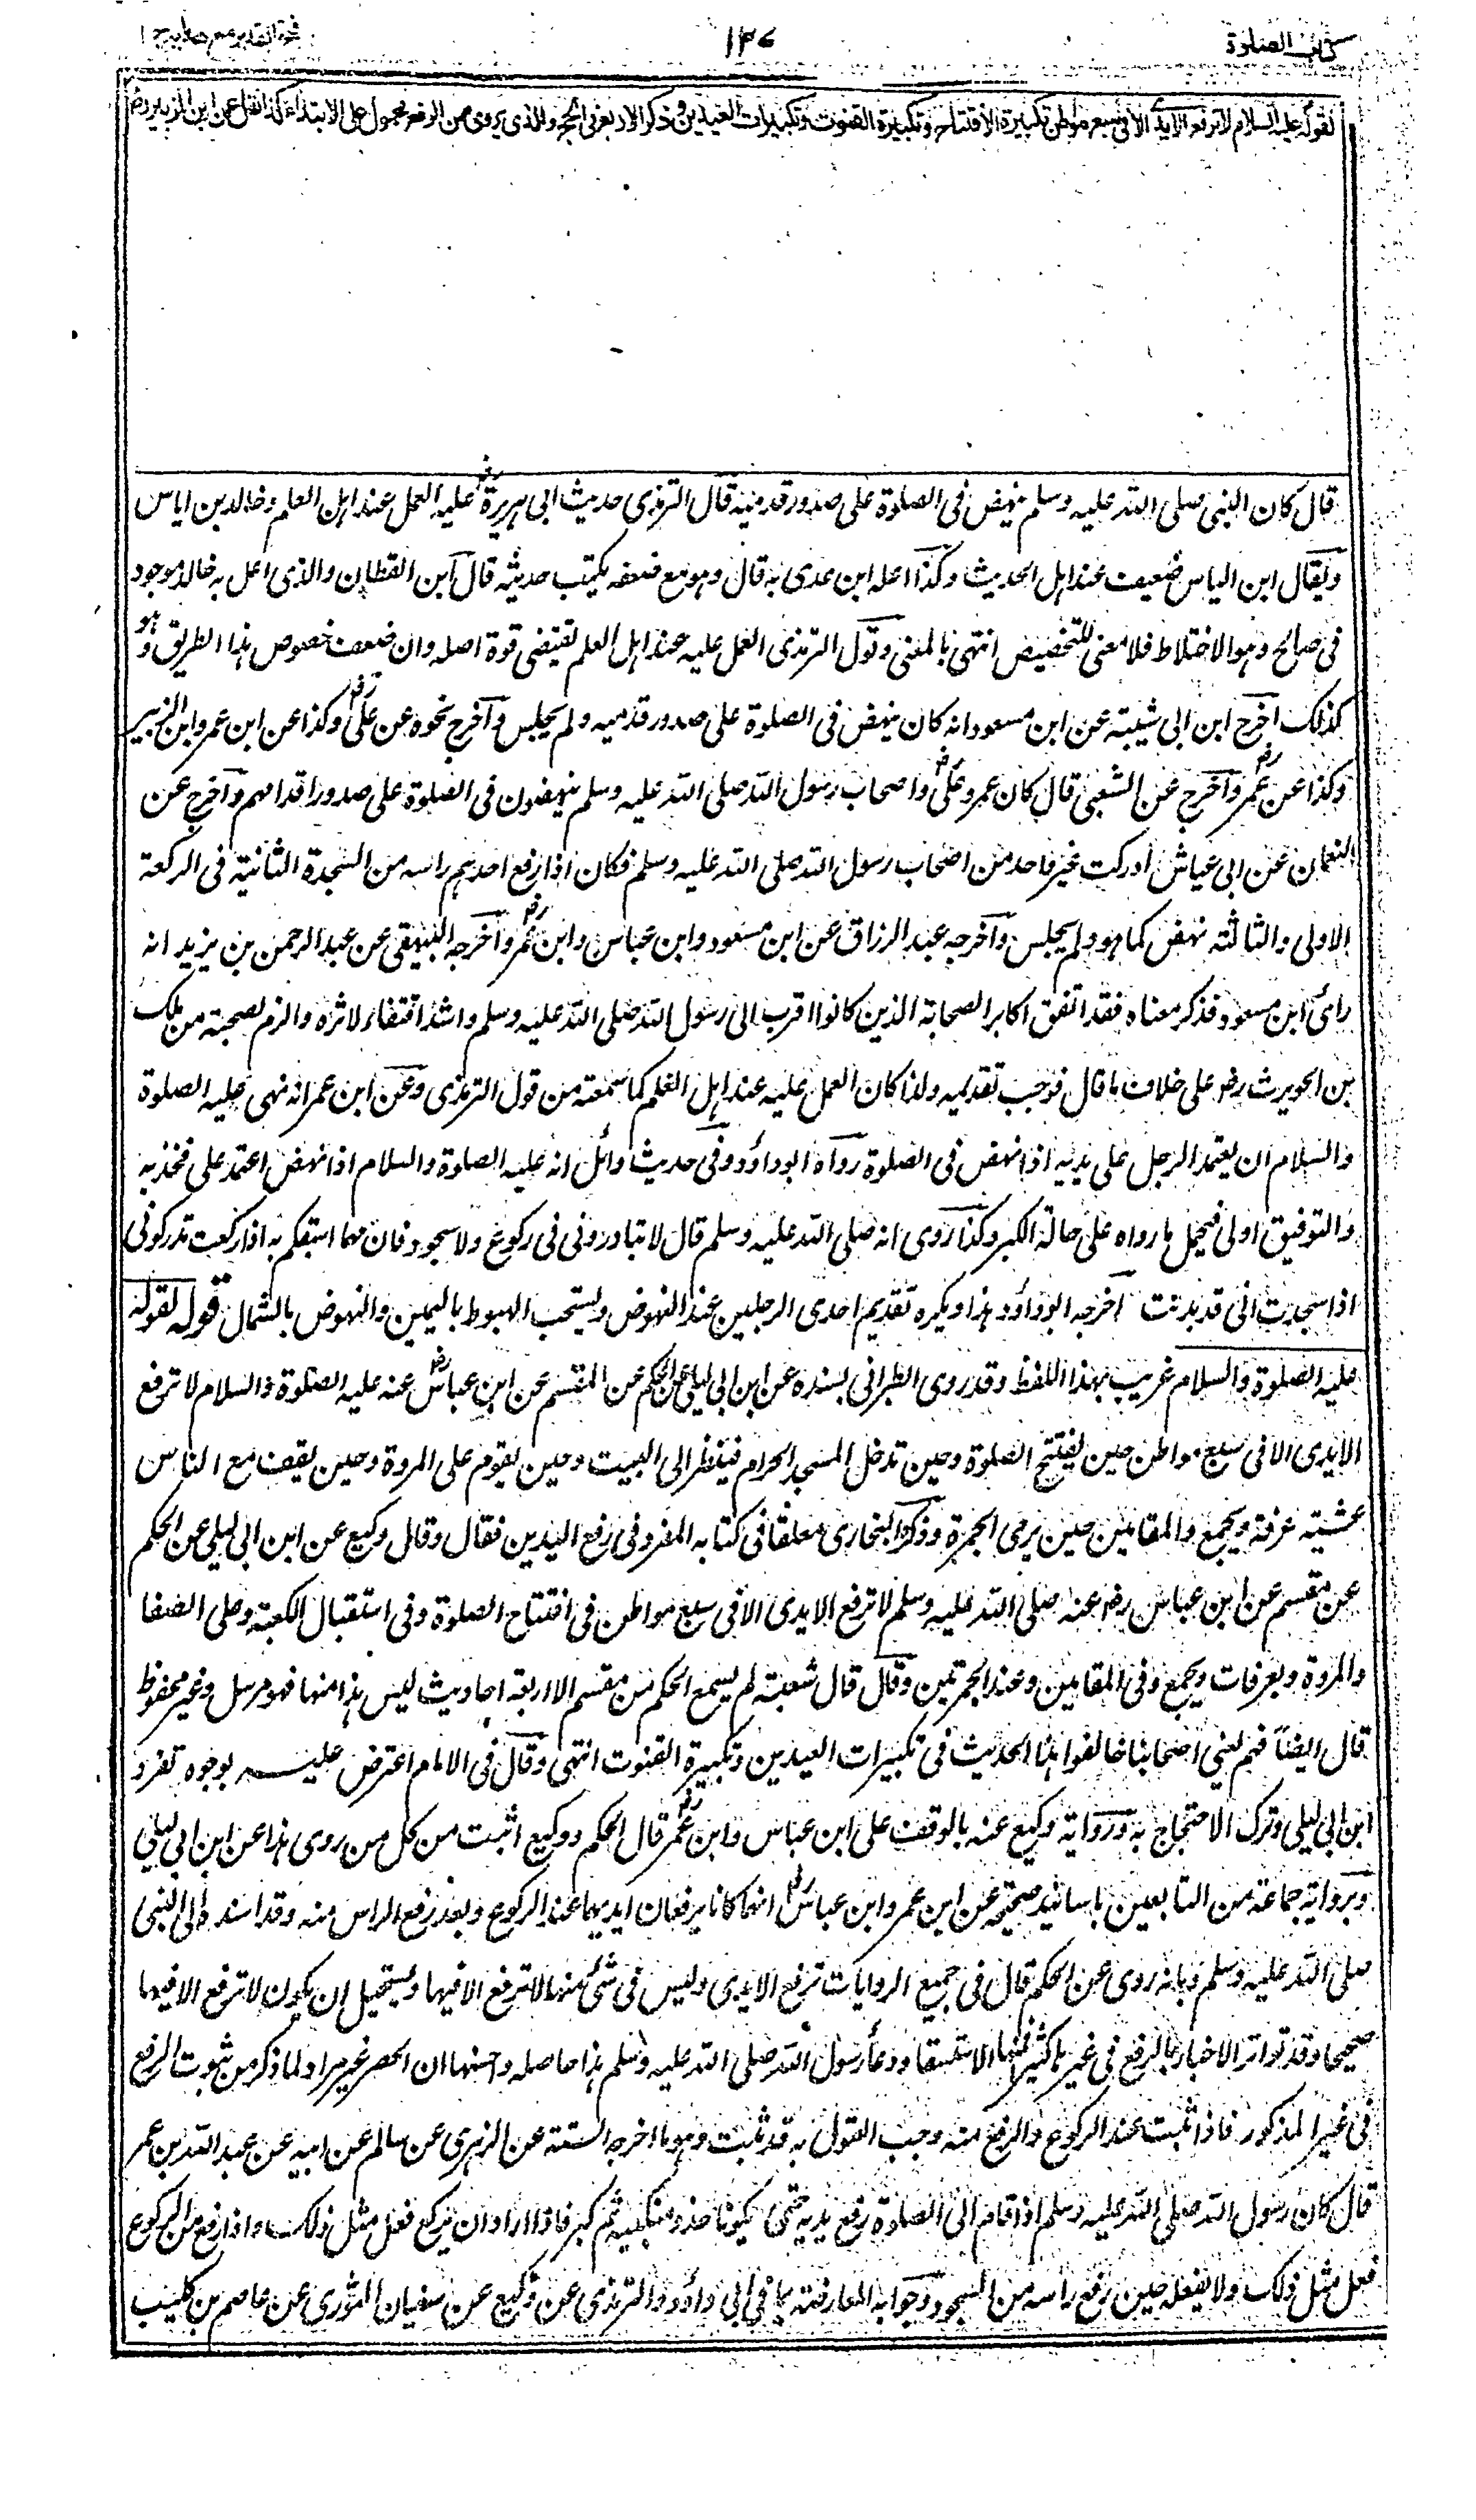 كتاب الصلوة
١٣٤
فتح القدير مع هدايه ج ١
لقوله عليه السلام لا ترفع الايدى الا فى سبع مواطن تكبيرة الافتتاح وتكبيرة القنوت وتكبيرات العيدين وذكر الاربع فى الحج والذى يروى من الرفع محمول على الابتداء كذا نقل عن ابن الزبير رض
قال كان النبى صلى الله عليه وسلم ينهض فى الصلوة على صدور قدميه قال الترمذى حديث ابى هريرة رض عليه العمل عند اهل العلم وخالد بن اياس
ويقال ابن الياس ضعيف عند اهل الحديث وكذا اعله ابن عدى به قال وهو مع ضعفه يكتب حديثه قال ابن القطان والذى اعل به خالد موجود
فى صالح وهو الاختلاط فلا معنى للتخصيص انتهى بالمعنى وقول الترمذى العمل عليه عند اهل العلم يقتضى قوة اصله وان ضعف خصوص هذا الطريق وهو
كذلك اخرج ابن ابى شيبة عن ابن مسعود انه كان ينهض فى الصلوة على صدور قدميه ولم يجلس واخرج نحوه عن على رض وكذا عن ابن عمر وابن الزبير
وكذا عن عمر رض واخرج عن الشعبى قال كان عمر وعلى رض واصحاب رسول الله صلى الله عليه وسلم ينهضون فى الصلوة على صدور اقدامهم واخرج عن
النعمان عن ابى عياش ادركت غير واحد من اصحاب رسول الله صلى الله عليه وسلم فكان اذا رفع احدهم راسه من السجدة الثانية فى الركعة
الاولى والثالثة نهض كما هو ولم يجلس واخرجه عبد الرزاق عن ابن مسعود وابن عباس وابن عمر رض واخرجه البيهقى عن عبد الرحمن بن يزيد انه
رأى ابن مسعود فذكر معناه فقد اتفق اكابر الصحابة الذين كانوا اقرب الى رسول الله صلى الله عليه وسلم واشد اقتفاء لاثره والزم لصحبته من ملك
بن الحويرث رض على خلاف ما قال فوجب تقديمه ولذا كان العمل عليه عند اهل العلم كما سمعته من قول الترمذى وعن ابن عمر انه نهى عليه الصلوة
والسلام ان يعتمد الرجل على يديه اذا نهض فى الصلوة رواه ابو داؤد وفى حديث وائل انه عليه الصلوة والسلام اذا نهض اعتمد على فخذيه
والتوفيق اولى فيحمل ما رواه على حالة الكبر وكذا روى انه صلى الله عليه وسلم قال لا تبادرونى فى ركوع ولا سجود فان مهما اسبقكم به اذا ركعت تدركونى
اذا سجدت انى قد بدنت اخرجه ابو داؤد هذا ويكره تقديم احدى الرجلين عند النهوض ويستحب الهبوط باليمين والنهوض بالشمال قوله لقوله
عليه الصلوة والسلام غريب بهذا اللفظ وقد روى الطبرانى بسنده عن ابن ابى ليلى عن الحكم عن المقسم عن ابن عباس رض عنه عليه الصلوة والسلام لا ترفع
الايدى الا فى سبع مواطن حين يفتتح الصلوة وحين تدخل المسجد الحرام فينظر الى البيت وحين يقوم على المروة وحين يقف مع الناس
عشية عرفة وبجمع والمقامين حين يرمى الجمرة وذكره البخارى معلقا فى كتابه المفرد فى رفع اليدين فقال وقال وكيع عن ابن ابى ليلى عن الحكم
عن مقسم عن ابن عباس رض عنه صلى الله عليه وسلم لا ترفع الايدى الا فى سبع مواطن فى افتتاح الصلوة وفى استقبال الكعبة وعلى الصفا
والمروة وبعرفات وبجمع وفى المقامين وعند الجمرتين وقال قال شعبة لم يسمع الحكم من مقسم الا اربعة احاديث ليس هذا منها فهو مرسل وغير محفوظ
قال ايضا فهم يعنى اصحابنا خالفوا هذا الحديث فى تكبيرات العيدين وتكبيرة القنوت انتهى وقال فى الامام اعترض عليه بوجوه تفرد
ابن ابى ليلى وترك الاحتجاج به ورواية وكيع عنه بالوقف على ابن عباس وابن عمر رض قال الحكم ووكيع اثبت من كل من روى هذا عن ابن ابى ليلى
وبرواية جماعة من التابعين باسانيد صحيحة عن ابن عمر وابن عباس رض انهما كانا يرفعان ايديهما عند الركوع وبعد رفع الراس منه وقد اسنداه الى النبى
صلى الله عليه وسلم وبانه روى عن الحكم قال فى جميع الروايات ترفع الايدى وليس فى شئ منها لا ترفع الا فيها ويستحيل ان يكون لا ترفع الا فيها
صحيحا وقد تواتر الاخبار بالرفع فى غيرها كثيرا فمنها الاستسقاء ودعاء رسول الله صلى الله عليه وسلم هذا حاصله واحسنها ان الحصر غير مراد لما ذكر من ثبوت الرفع
فى غير المذكور فاذا ثبت عند الركوع والرفع منه وجب القول به قد ثبت وهو ما اخرجه الستة عن الزهرى عن سالم عن ابيه عن عبد الله بن عمر
قال كان رسول الله صلى الله عليه وسلم اذا قام الى الصلوة رفع يديه حتى يكونا حذو منكبيه ثم كبر فاذا اراد ان يركع فعل مثل ذلك واذا رفع من الركوع
فعل مثل ذلك ولا يفعله حين يرفع راسه من السجود وجوابه المعارضة بما فى ابى داؤد والترمذى عن وكيع عن سفيان الثورى عن عاصم بن كليب